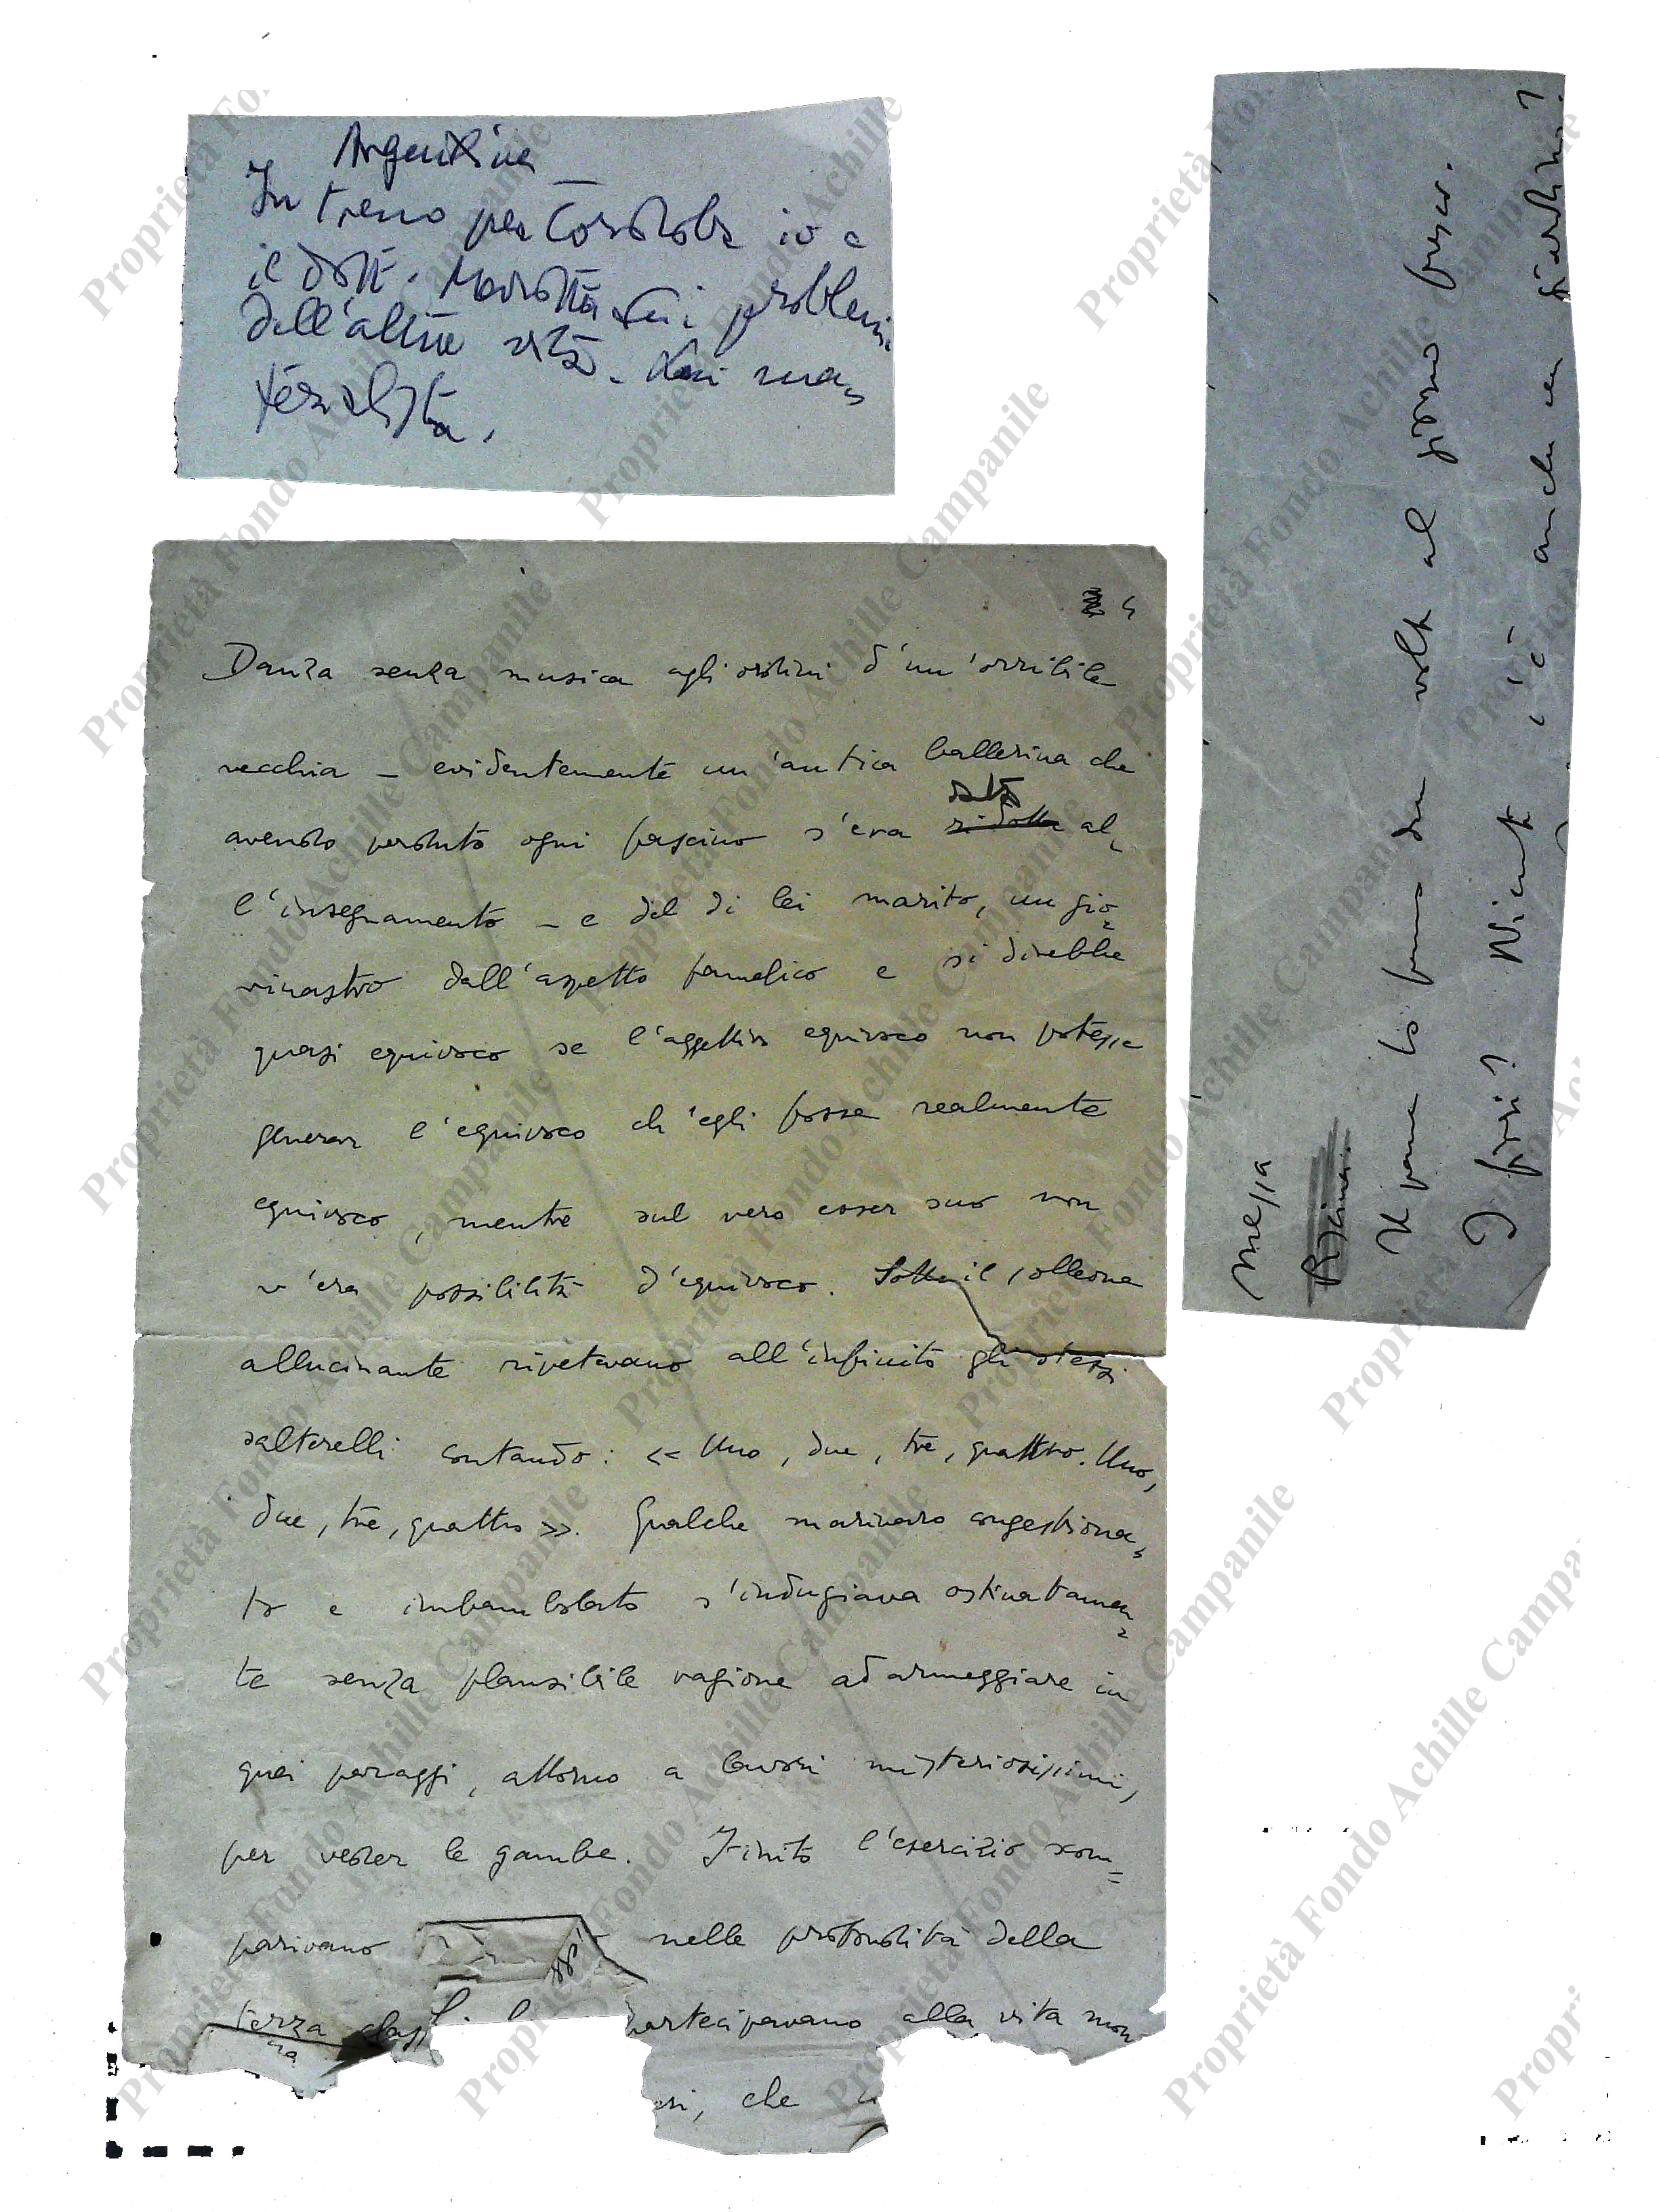 Argentina
In treno per Cordoba io e
il dott. Marotta sui problemi
dell'altra vita. Lui ma-
terialista.
4
Danza senza musica agli ordini d'un'orribile
vecchia – evidentemente un'antica ballerina che
avendo perduto ogni fascino s'era data al-
l'insegnamento – e del di lei marito, un gio-
vinastro dall'aspetto famelico e si direbbe
quasi equivoco se l'aggettivo equivoco non potesse
generar l'equivoco ch'egli fosse realmente
equivoco, mentre sul vero esser suo non
v'era possibilità d'equivoco. Sotto il solleone
allucinante ripetevano all'infinito gli stessi
salterelli contando: « Uno, due, tre, quattro. Uno,
due, tre, quattro ». Qualche marinaro congestiona-
to e imbambolato s'indugiava ostinatamen-
te senza plausibile ragione ad armeggiare in
quei paraggi, attorno a lavori misteriosissimi,
per veder le gambe. Finito l'esercizio scom-
parivano nelle profondità della
terza partecipavano alla vita mon
che
messa
Il pane lo fanno due volte al giorno fresco.
I fiori? Niente c'è anche un giardino?
Proprietà Fondo Achille Campanile